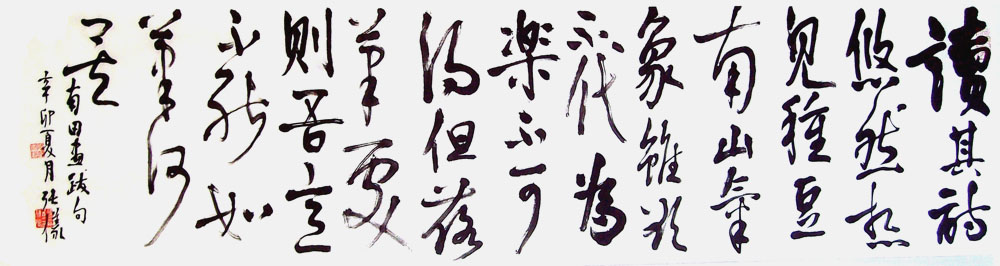 讀其詩
悠然想
見種豆
南山氣
象雖欲
不代為
樂不可
得但落
筆處
則吾言
不能如
筆何
有田畫跋句
辛卯夏月張